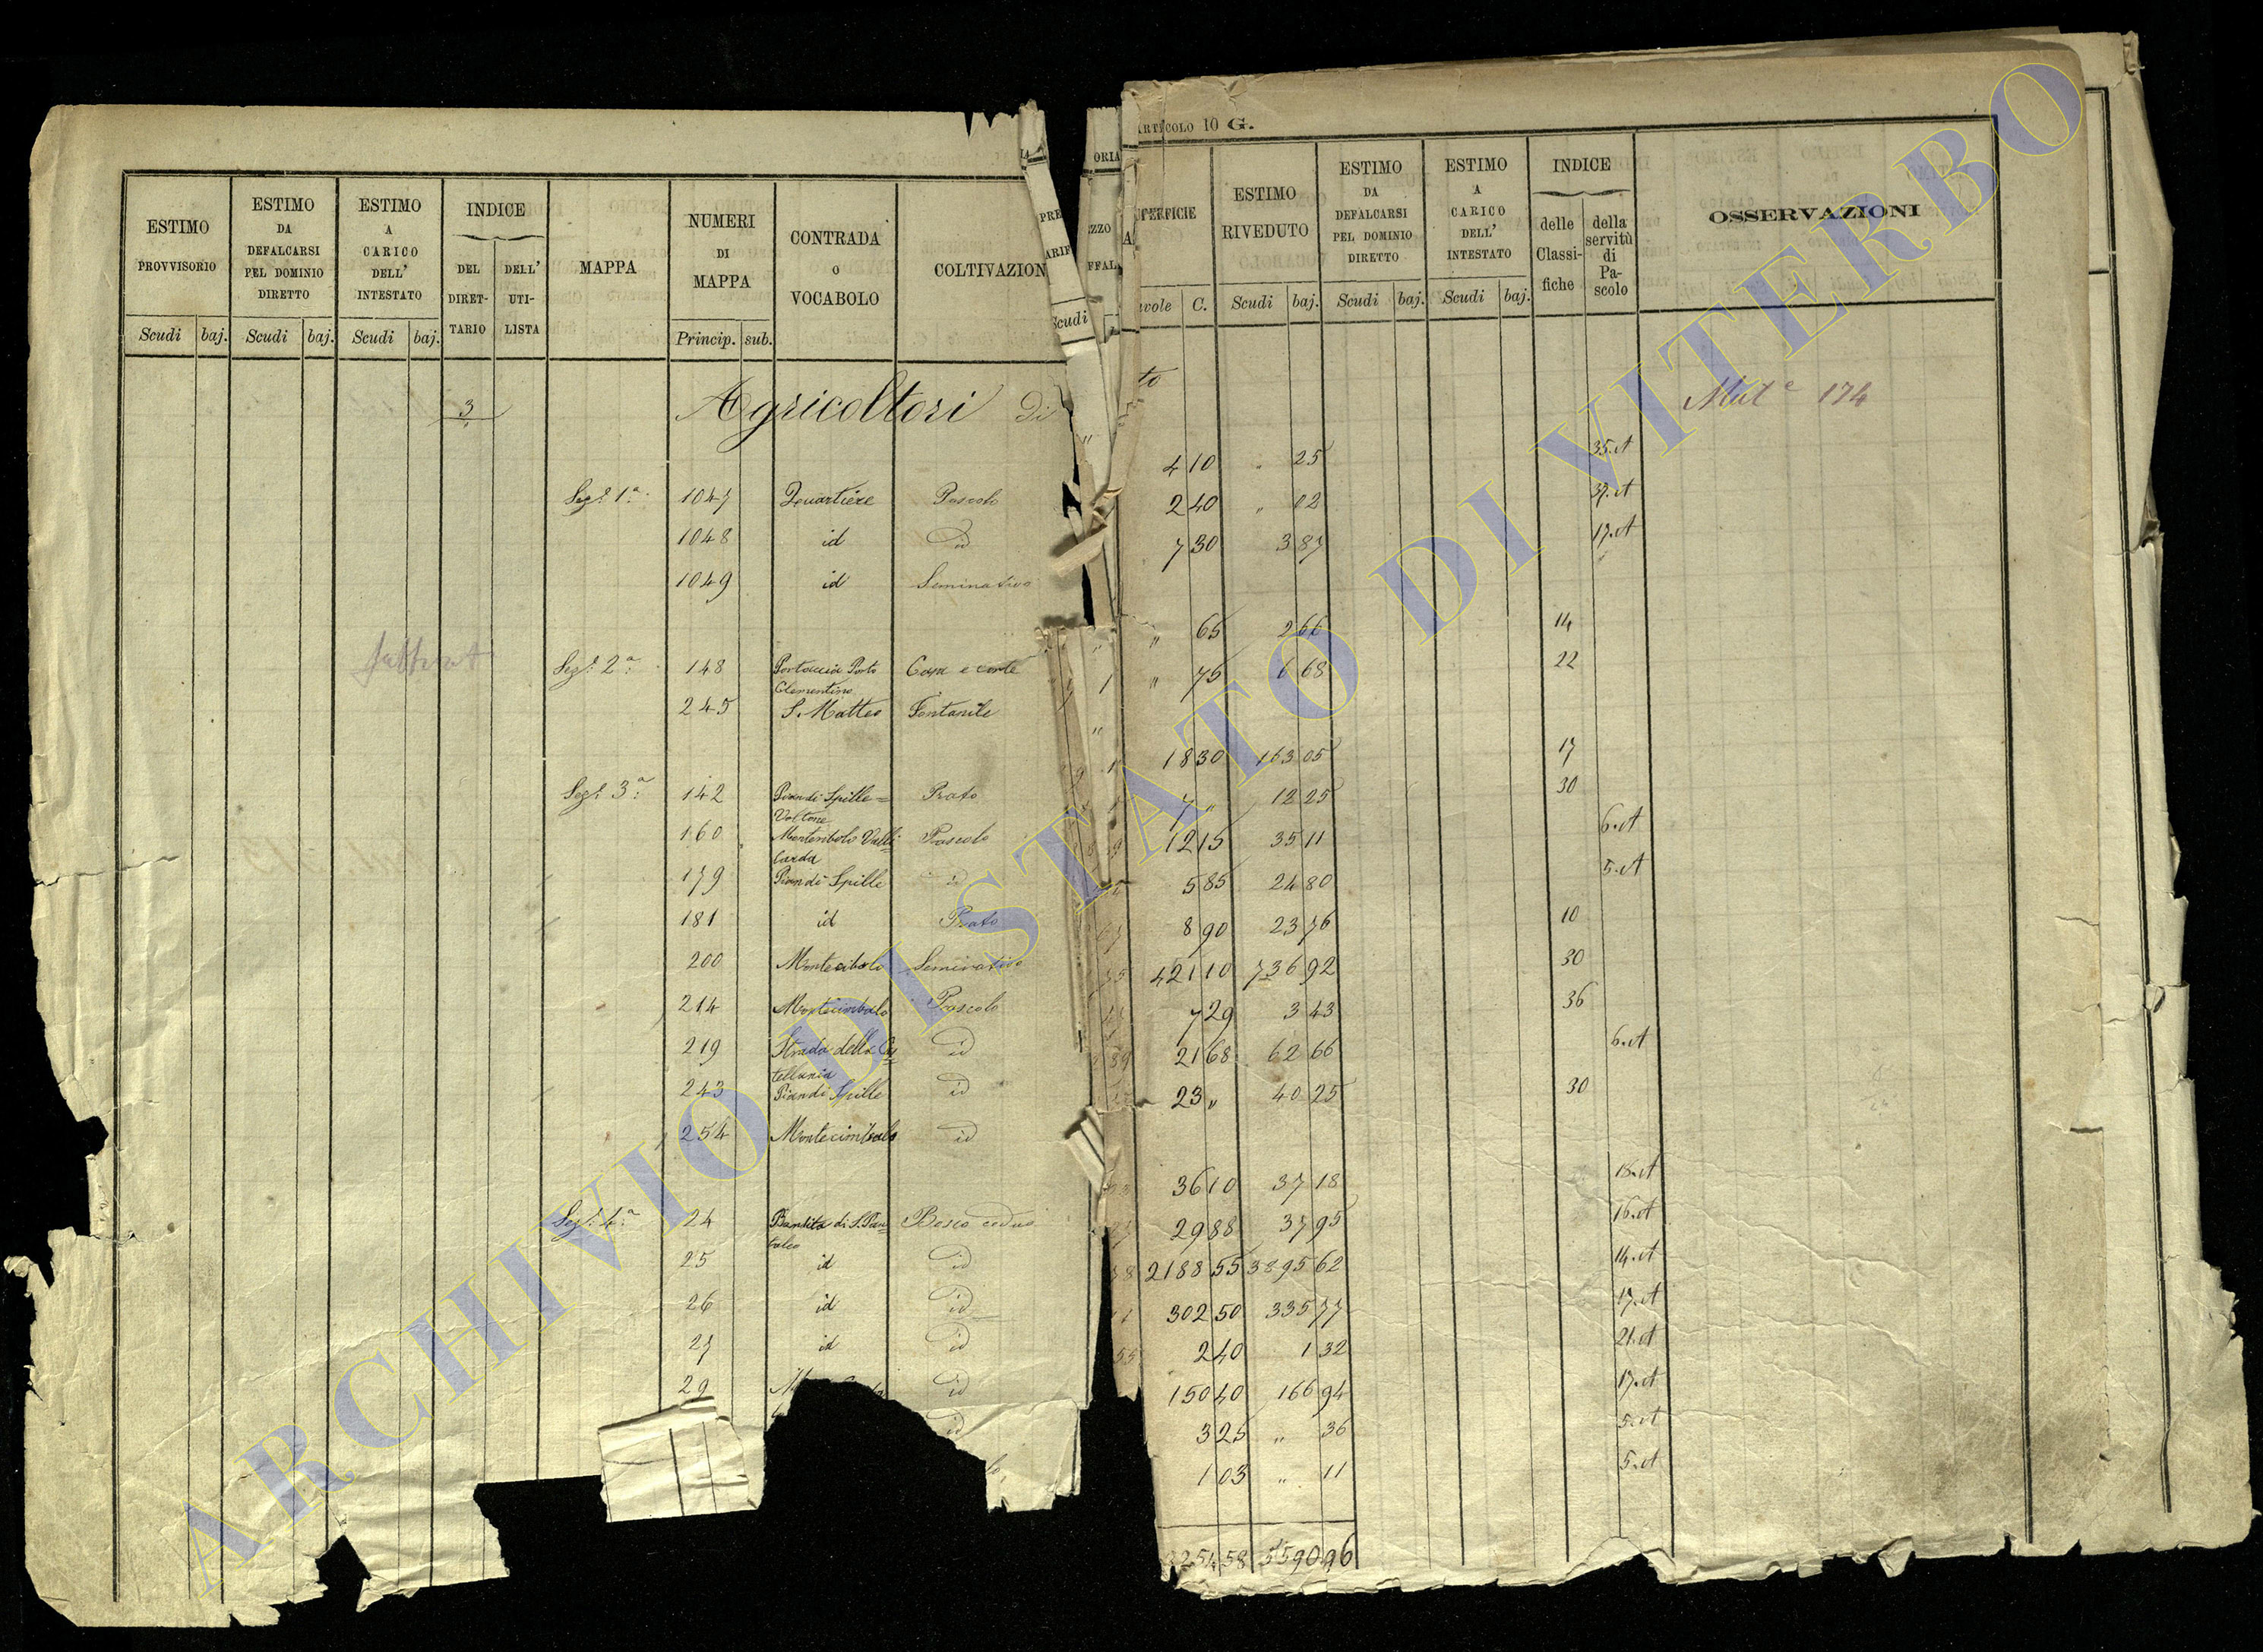 ARTICOLO 10 G.
ESTIMO PROVVISORIO
ESTIMO DA DEFALCARSI PEL DOMINIO DIRETTO
ESTIMO A CARICO DELL' INTESTATO
INDICE
DEL DIRET-TARIO
DELL' UTI-LISTA
MAPPA
NUMERI DI MAPPA
CONTRADA O VOCABOLO
COLTIVAZION
Scudi baj. Scudi baj. Scudi baj. Princip. sub.
PRE
ARIF
Scudi
ORIA
EZZO
FFAL
PERFICIE
ESTIMO RIVEDUTO
ESTIMO DA DEFALCARSI PEL DOMINIO DIRETTO
ESTIMO A CARICO DELL' INTESTATO
INDICE
delle Classi-fiche
della servitù di Pa-scolo
OSSERVAZIONI
vole C. Scudi baj. Scudi baj. Scudi baj.
3 Agricoltori di
to
174
Sez.e 1a 1047 Quartiere Pascolo
1048 id id
1049 id Seminativo
Sez.e 2a 148 Portaccia Porto Clementino Casa e corte
245 S. Matteo Fontanile
Sez.e 3a 142 Piandi Spille= Voltone Prato
160 Pascolo
179 Piandi Spille id
181 id Prato
200 Seminativo
214 Montecimbalo Pascolo
219 Strada della Cas=tellania id
243 Piandi Spille id
254 Montecimbalo id
Sez.e 4a 24 Bandita di S. Pan=taleo Bosco ceduo
25 id id
26 id id
27 id id
29 id
id
4 10 " 25 35.A
2 40 " 02 37.A
7 30 3 87 17.A
" 65 2 66 14
" 75 6 68 22
18 30 163 05 17
7 " 12 25 30
12 15 35 11 6.A
5 85 24 80 5.A
8 90 23 76 10
421 10 736 92 30
7 29 3 43 36
21 68 62 66 6.A
23 " 40 25 30
36 10 37 18 18.A
29 88 37 95 16.A
2188 55 3895 62 14.A
302 50 335 77 17.A
2 40 1 32 21.A
150 40 166 94 17.A
3 25 " 36 5.A
1 03 " 11 5.A
58 5590 96
ARCHIVIO DI STATO DI VITERBO